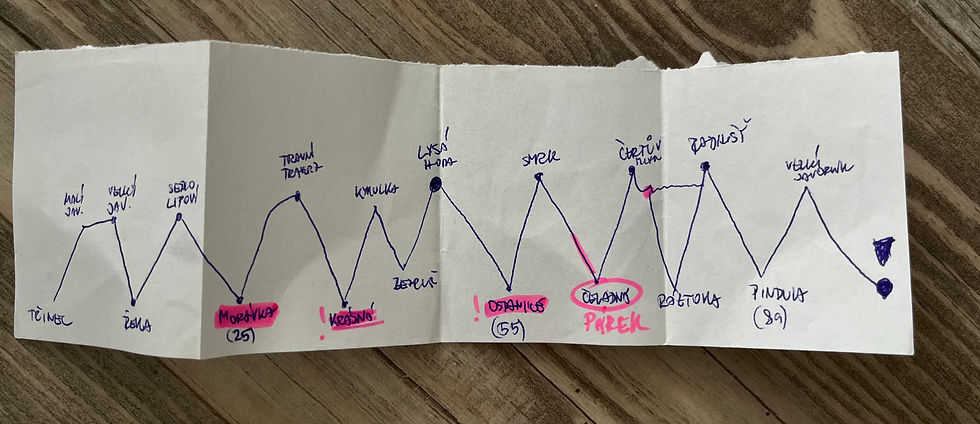 MALÝ
JAV.
VELKÝ
JAV.
SEDLO
LIPOVÝ
TRAVNÝ
KYKULKA
LYSÁ
HORA
SMRK
ČERTŮV
MLÝN
RADHOŠŤ
VELKÝ
JAVORNÍK
TŘINEC
ŘEKA
MORÁVKA
(25)
! KRÁSNÁ
! OSTRAVICE
(55)
ČELADNÁ
PÁREK
ROZTOKA
PINDULA
(89)